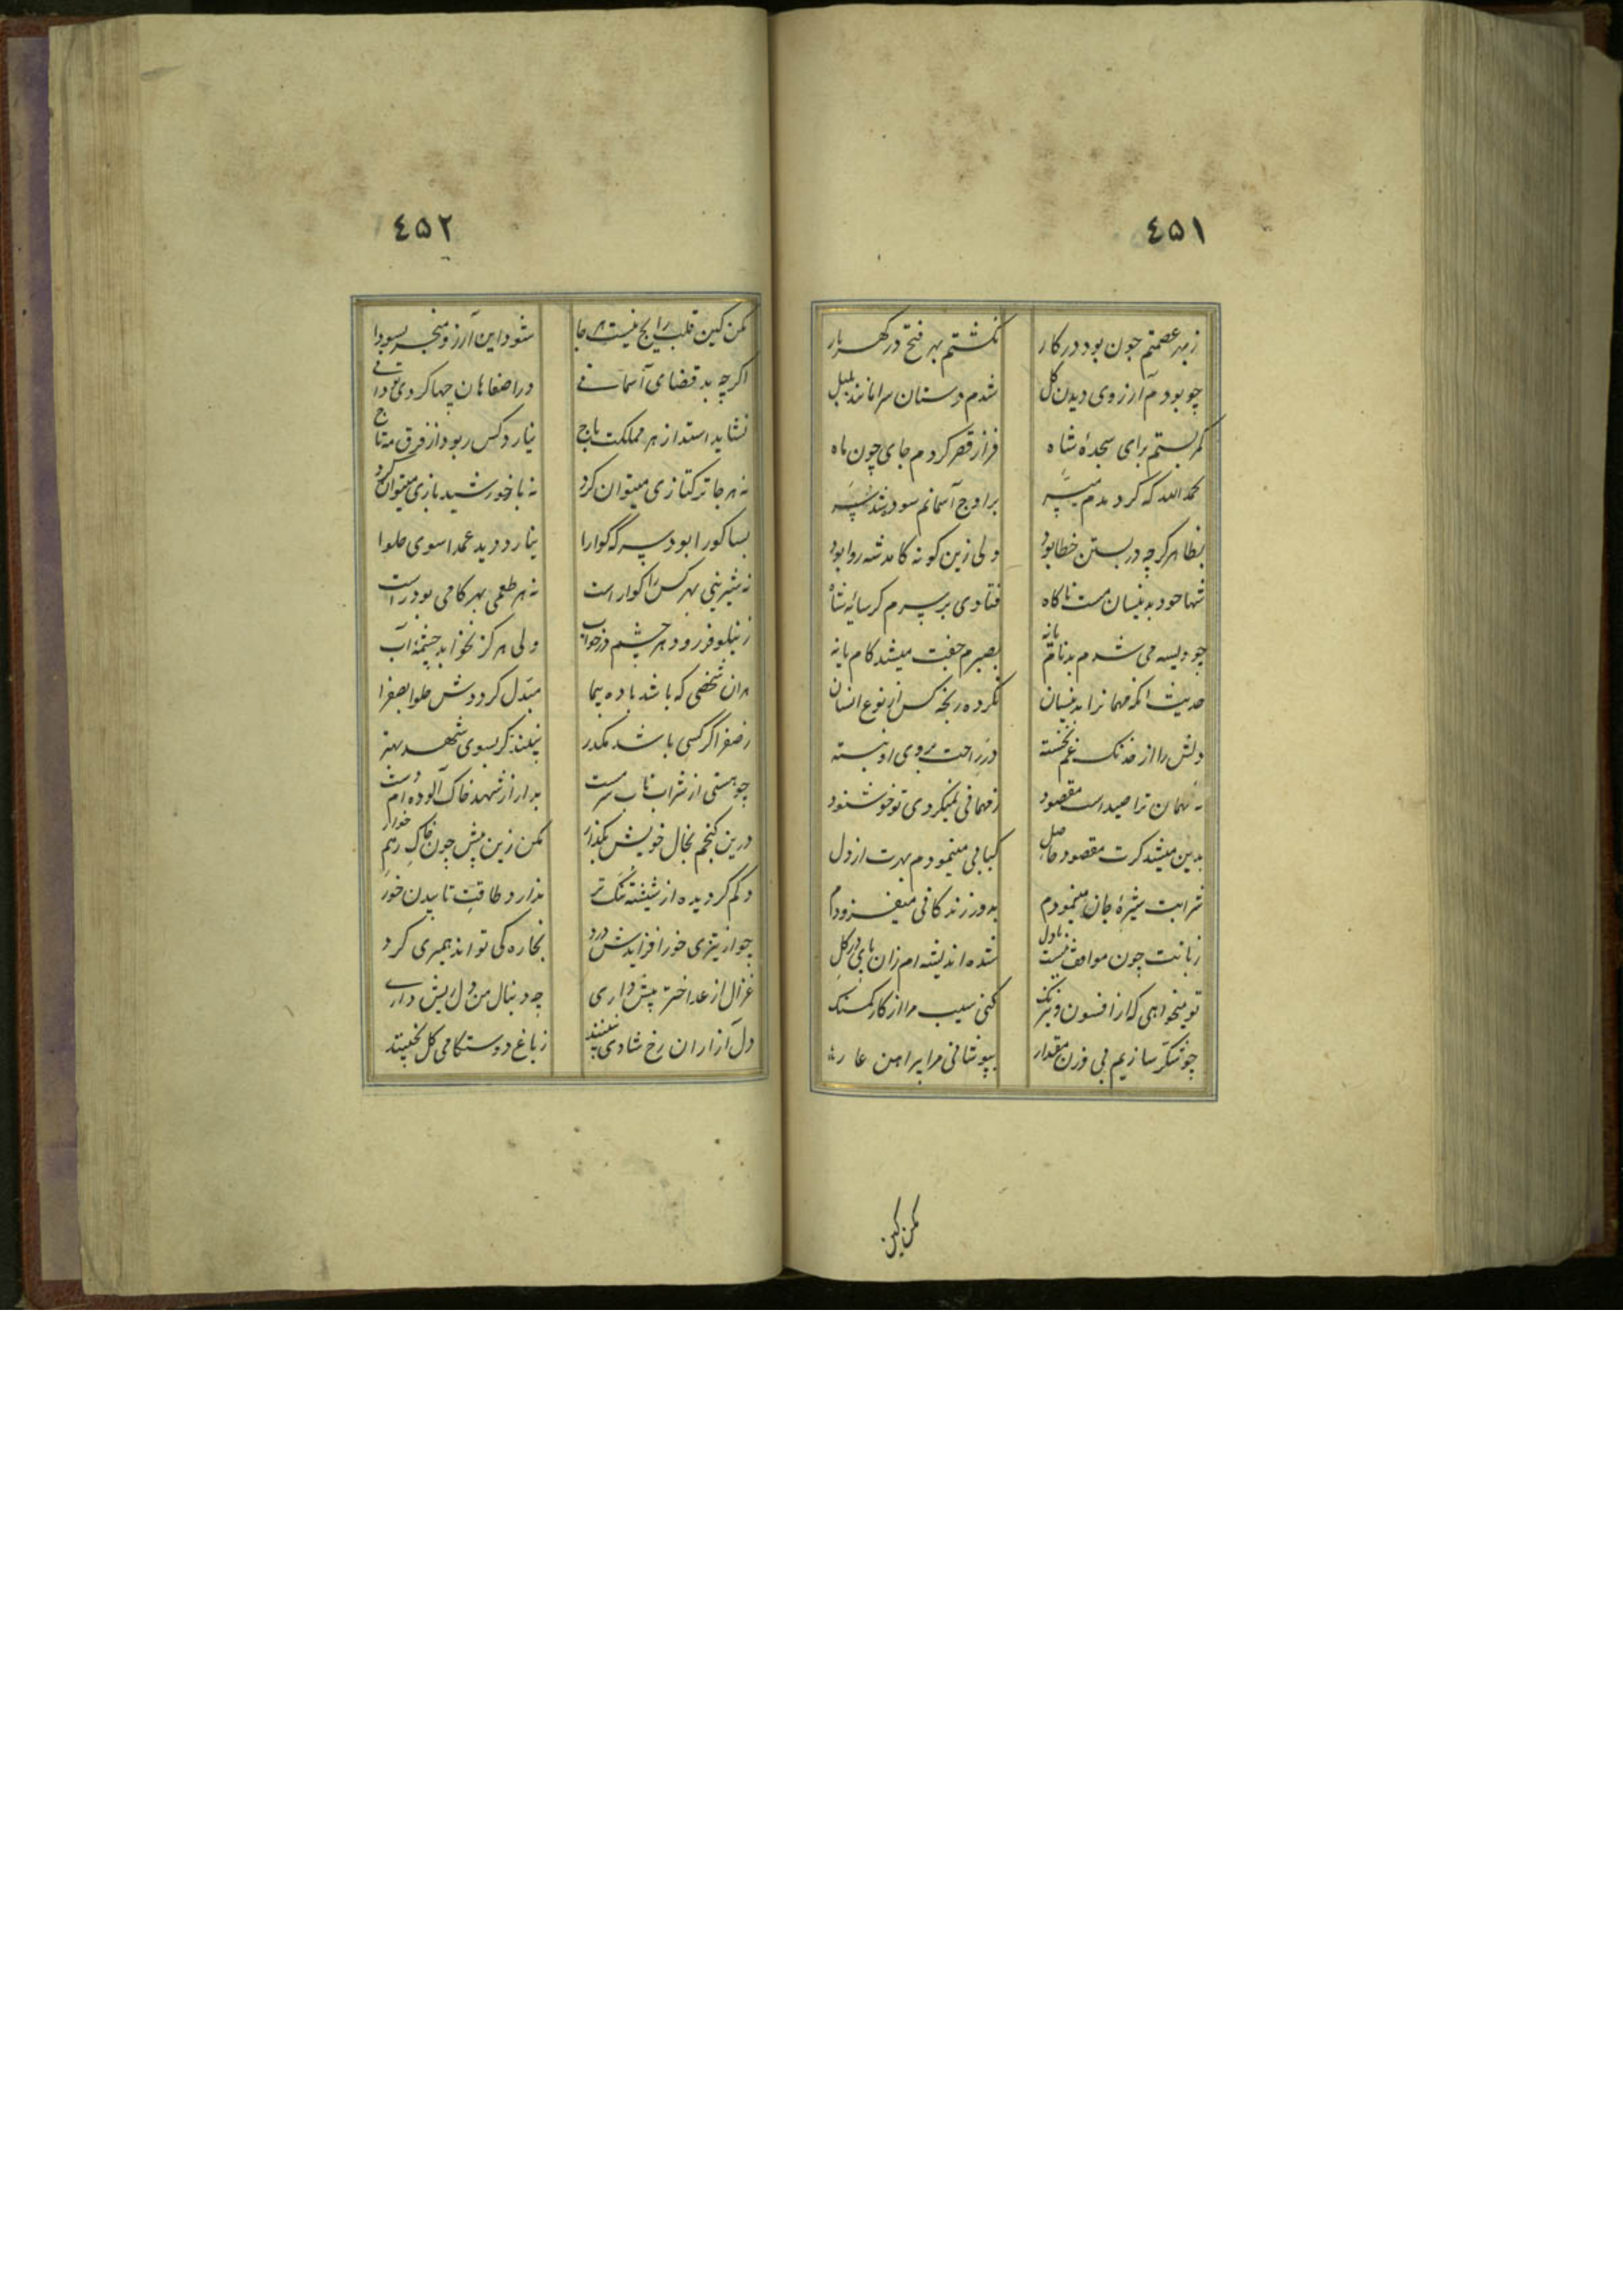 ٤٥١
ز بهر عصمتم چون بود در کار نکشتم بهر فتح در کهربار
چو بودم آرزوی دیدن کل شدم دستان سرا مانند بلبل
کمر بستم برای سجدهٔ شاه فراز قصر کردم جای چون ماه
بحمدالله که کردیدم بر اوج آسمانم سود
بظاهر کرچه در بستن خطا بود ولی زین کونه کامد شه روا بود
شها خود بدینسان مست ناکاه فتادی بر سرم کر سایهٔ شاه
چو ویسه می شدم بدنام یا نه بصبرم جفت میشد کام یا نه
حدیث انکه مهمانرا بدینسان نکرده رنجه کس از نوع انسان
دلش را از خدنک غم نخسته در راحت بروی او نبسته
نه مهمان ترا صید است مقصود ز مهمانی نمیکردی تو خوشنود
بدین میشد کرت مقصود حاصل کبابی مینمودم بهرت از دل
شرابت شیرهٔ جان مینمودم بدور زندکانی میفزودم
زبانت چون موافق نیست با دل شده اندیشه ام زان پای در کل
تو میخواهی که از افسون و نیرنک کنی سیب مرا از کار کمسنک
چو شکر سازیم بی وزن مقدار بپوشانی مرا پیراهن عار
مکن کین
٤٥٢
مکن کین قلب رایج نیست هر جا شود این آرزو منجر بسودا
اکرچه بد قضای آسمانی در اصفاهان چها کردی تو دانی
نشاید استد از هر مملکت باج نیارد کس ربود از فرق مه تاج
نه هر جا ترکتازی میتوان کرد نه با خورشید بازی میتوان کرد
بسا کورا بود سرکه کوارا نیارد دید عمدا سوی حلوا
نه شیرینی بهر کس را کوار است نه هر طعمی بهر کامی بود راست
ز نیلوفر رود هر چشم در خواب ولی هرکز نخوابد چشمهٔ آب
هران شخصی که باشد باده پیما مبدل کرددش حلوا بصفرا
ز صفرا کر کسی باشد مکدر نبیند کر بسوی شهد بهتر
چو هستی از شراب ناب سرمست بدار از شهد خاک آلوده ام دست
درین کنجم بحال خویش بکذار مکن زین پیش چون خاک رهم خوار
دلم کردیده از شیشه تنک تر ندارد طاقت تابیدن خور
چو از تیزی خور افزایدش درد بخاره کی تواند همسری کرد
غزال از عد اختر پیش داری چه دنبال من دل ریش داری
دل آزاران رخ شادی نبینند ز باغ دوستکامی کل نچینند